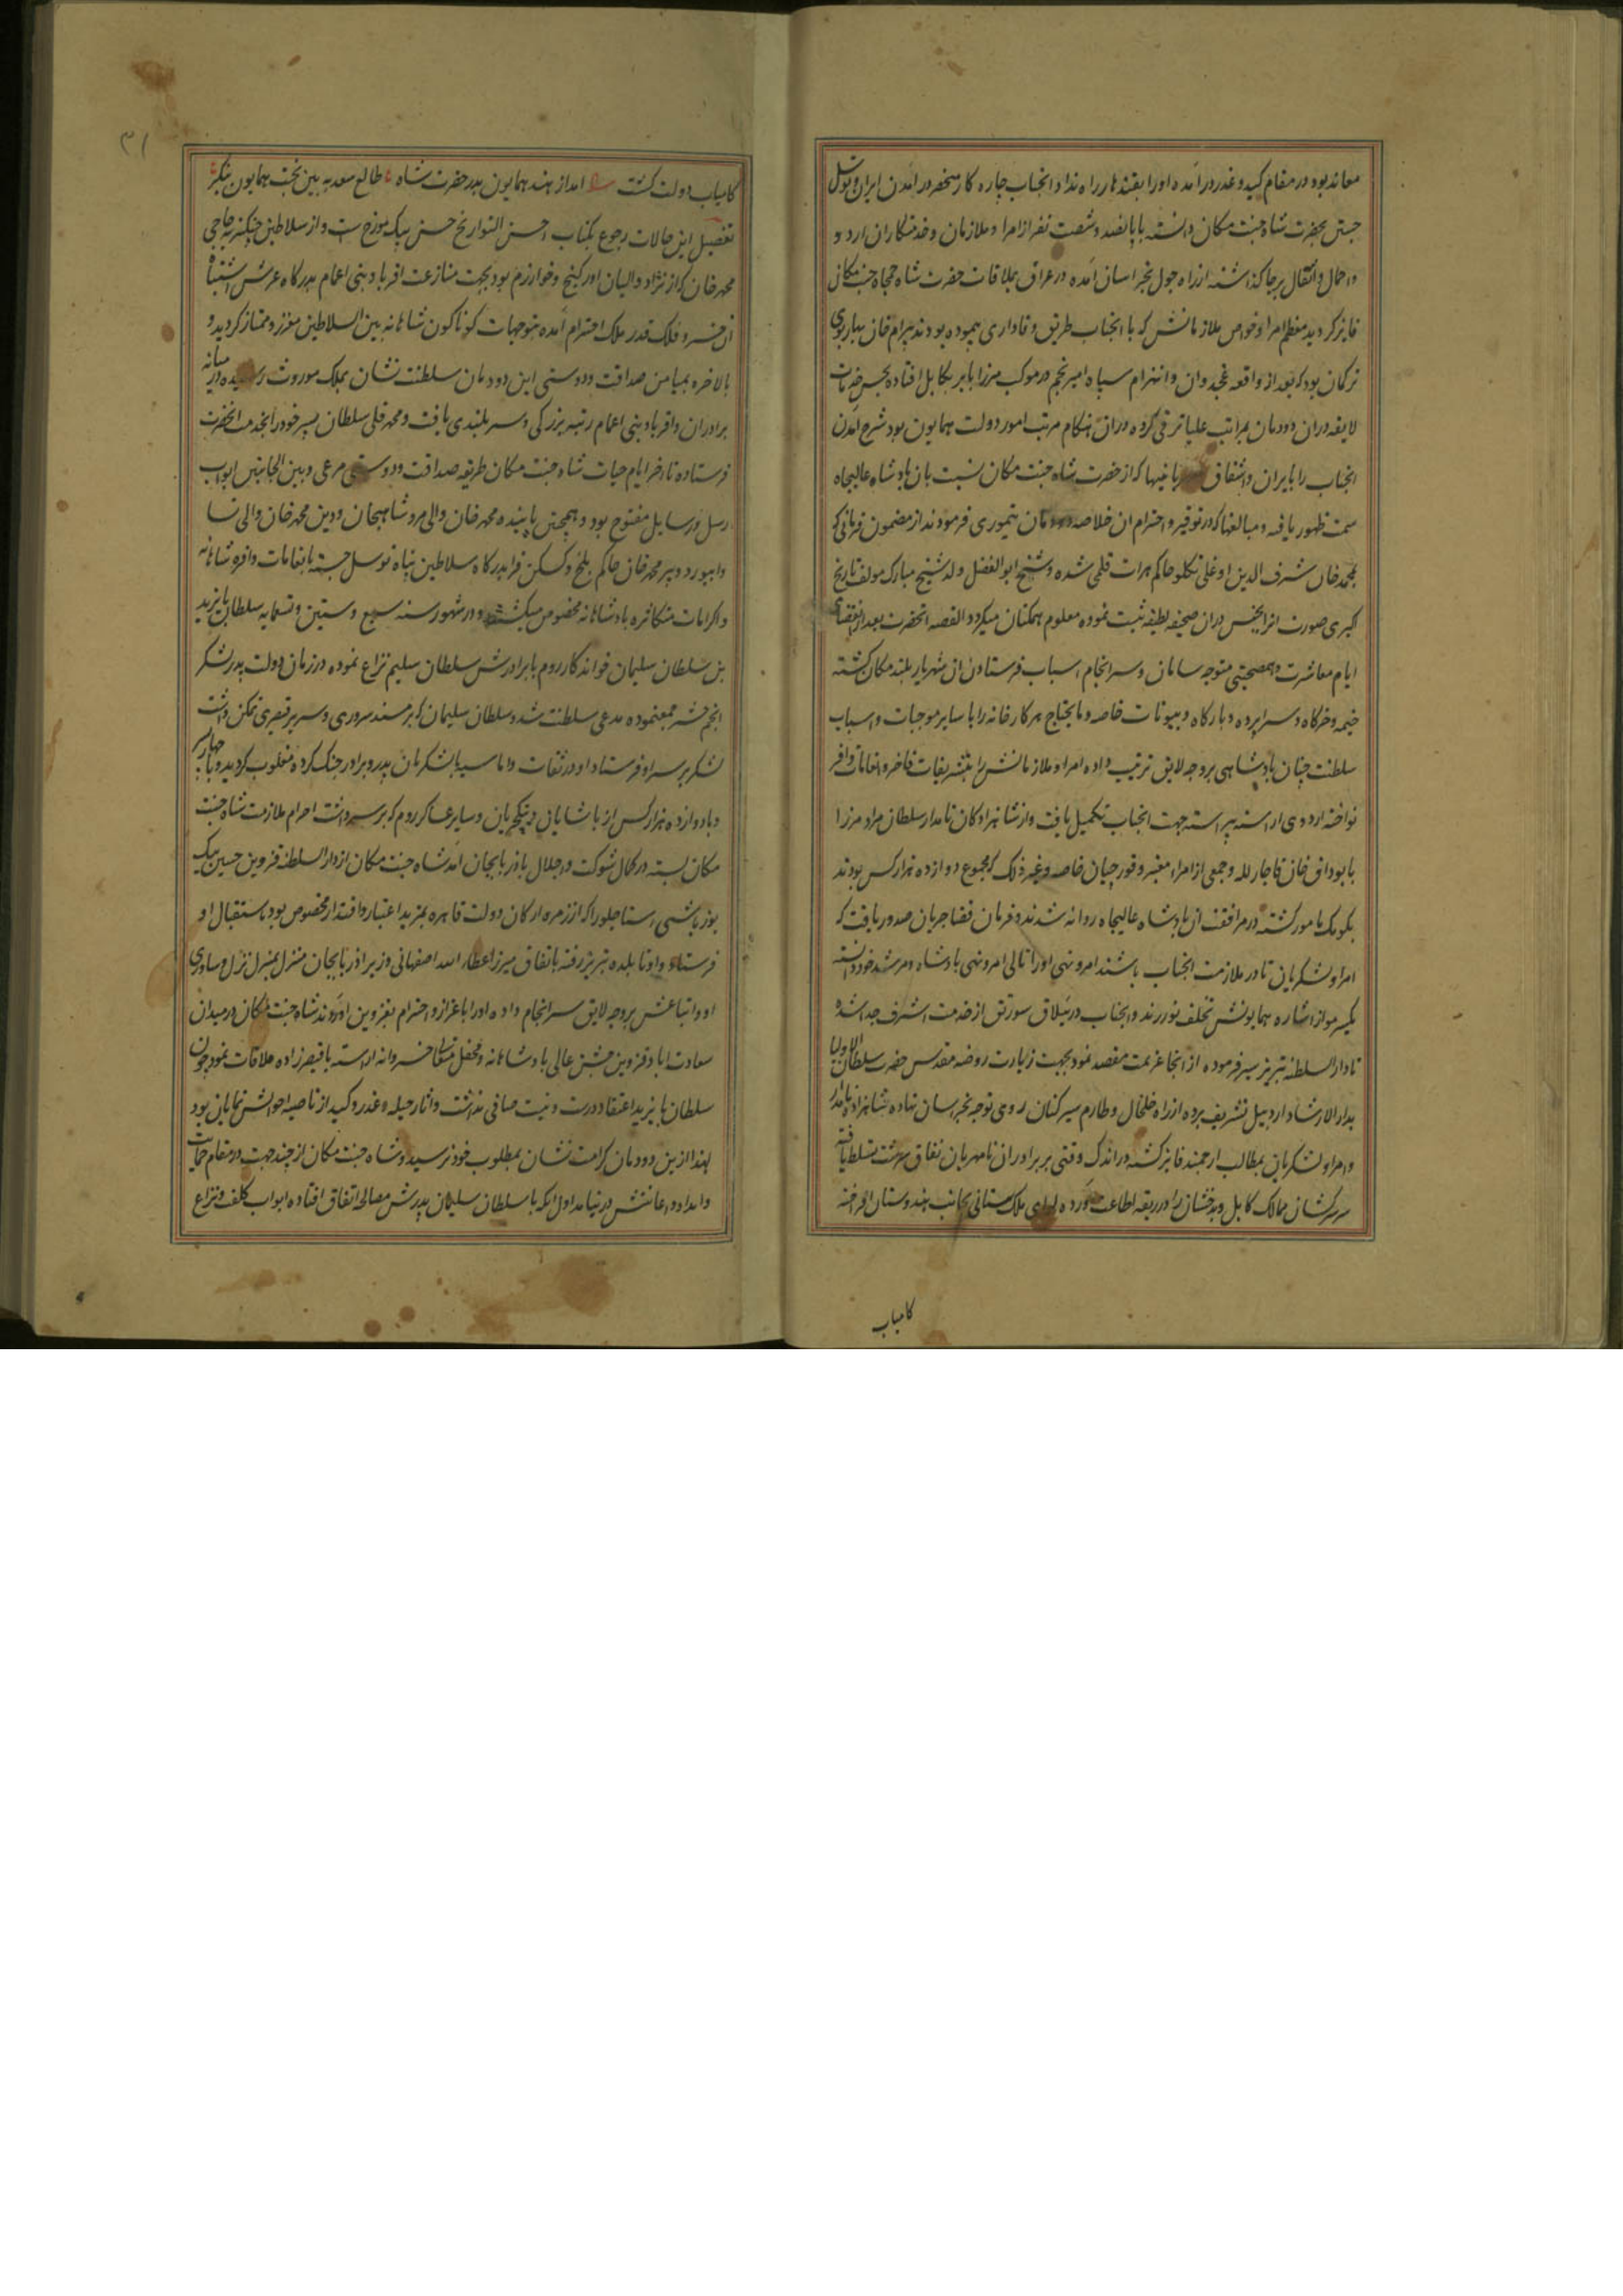 معاند بود در مقام کید و غدر در آمده او را بقندهار راه نداد و انجناب چاره کار منحصر در آمدن ایران و توسل
جستن بحضرت شاه جنت مکان دانسته با پانصد و شصت نفر از امرا و ملازمان و خدمتکاران اردو
و احمال و اثقال برجا گذاشته از راه چول بخراسان آمده در عراق بملاقات حضرت شاه جمجاه جنت مکانی
فایز کردید معظم امرا و خواص ملازمانش که با انجناب طریق وفاداری پیموده بودند بیرام خان بهارلوی
ترکمان بود که بعد از واقعه غجدوان و انهزام سپاه امیر نجم در موکب میرزا بابر بکابل افتاده بحسن خدمات
لایقه دران دودمان بمراتب علیا ترقی کرده دران هنکام مرتب امور دولت همایون بود شرح آمدن
انجناب را بایران و اشفاق و مهربانیها که از حضرت شاه جنت مکان نسبت بان پادشاه عالیجاه
سمت ظهور یافته و مبالغها که در توقیر و احترام ان خلاصه دودمان تیموری فرمودند از مضمون فرمانی که
بمحمد خان شرف الدین اوغلی تکلو حاکم هرات قلمی شده و شیخ ابوالفضل ولد شیخ مبارک مولف تاریخ
اکبری صورت انرا بجنس دران صحیفه لطیفه ثبت نموده معلوم همکنان میکردد القصه انحضرت بعد از انقضای
ایام معاشرت و همصحبتی متوجه سامان و سرانجام اسباب فرستادن ان شهریار بلند مکان کشته
خیمه و خرکاه و سراپرده و بارکاه و بیوتات خاصه و مایحتاج هر کارخانه را با سایر موجبات و اسباب
سلطنت چنان پادشاهی بر وجه لایق ترتیب داده امرا و ملازمانش را بتشریفات فاخر و انعامات وافر
نواخته اردوی اراسته پیراسته جهت انجناب تکمیل یافت و از شاهزادکان نامدار سلطان مراد میرزا
با بوداق خان قاجار لله و جمعی از امراء معتبر و قورچیان خاصه و غیر ذلک که مجموع دوازده هزار کس بودند
بکومک مامور کشته در مرافقت ان پادشاه عالیجاه روانه شدند و فرمان قضا جریان صدور یافت که
امرا و لشکریان تا در ملازمت انجناب باشند امر و نهی او را تالی امر و نهی پادشاه و مرشد خود دانسته
یکسر مو از اشاره همایونش تخلف نورزند و انجناب در ییلاق سورلق از خدمت اشرف جدا شده
تا دارالسلطنه تبریز سیر فرموده از انجا عزیمت مقصد نمود بجهت زیارت روضه مقدس حضرت سلطان الاولیا
بدارالارشاد اردبیل تشریف برده از راه خلخال و طارم سیرکنان روی توجه بخراسان نهاده شاهزاده نامدار
و امرا و لشکریان بمطالب ارجمند فایز کشته در اندک وقتی بر برادران نامهربان نفاق سرشت تسلط یافته
سرکشان ممالک کابل و بدخشان را در ربقه اطاعت آورده لوای ملک ستانی بجانب هندوستان افراخته
کامیاب
۳۱
کامیاب دولت کشت امد از هند همایون بدر حضرت شاه طالع سعد ببین بخت همایون بنکر
تفصیل این حالات رجوع بکتاب احسن التواریخ حسن بیک مورخ است و از سلاطین چنکیزیه حاجی
محمد خان که از نژاد والیان اورکنج و خوارزم بود بجهت منازعت اقربا و بنی اعمام بدرکاه عرش اشتباه
ان خسرو فلک قدر ملک احترام آمده بتوجهات کوناکون شاهانه بین السلاطین معزز و ممتاز کردید و
بالاخره بمیامن صداقت و دوستی این دودمان سلطنت نشان بملک موروث رسیده در میانه
برادران و اقربا و بنی اعمام رتبه بزرکی و سربلندی یافت و محمد قلی سلطان پسر خود را بخدمت انحضرت
فرستاده تا اخر ایام حیات شاه جنت مکان طریقه صداقت و دوستی مرعی و بین الجانبین ابواب
رسل و رسایل مفتوح بود و همچنین پاینده محمد خان والی مرو شاهیجان و دین محمد خان والی نسا
و ابیورد و پیر محمد خان حاکم بلخ و کسکن قرا بدرکاه سلاطین پناه توسل جسته بانعامات وافره شاهانه
و اکرامات متکاثره پادشاهانه مخصوص میکشتند و در شهور سنه سبع و ستین و تسعمایه سلطان بایزید
بن سلطان سلیمان خواندکار روم با برادرش سلطان سلیم نزاع نموده در زمان دولت پدر لشکر
انجم حشر جمع نموده مدعی سلطنت شد و سلطان سلیمان که بر مسند سروری و سریر قیصری تمکن داشت
لشکر بر سر او فرستاد او در ثقات و اماسیه با لشکریان پدر و برادر جنک کرده مغلوب کردید و با چهار پسر
و با دوازده هزار کس از پاشایان و ینکچریان و سایر عساکر روم که بر سر داشت احرام ملازمت شاه جنت
مکان بسته در کمال شوکت و اجلال باذربایجان آمد شاه جنت مکان از دارالسلطنه قزوین حسین بیک
یوزباشی استاجلو را که از زمره ارکان دولت قاهره بمزید اعتبار و اقتدار مخصوص بود باستقبال او
فرستاد و او تا بلده تبریز رفته باتفاق میرزا عطاء الله اصفهانی وزیر اذربایجان منزل بمنزل نزل و ساوری
او و اتباعش بر وجه لایق سرانجام داده او را با عزاز و احترام بقزوین اوردند شاه جنت مکان در میدان
سعادت اباد قزوین جشن عالی پادشاهانه و محفل متعالی خسروانه اراسته با قیصرزاده ملاقات نمود چون
سلطان بایزید اعتقاد درست و نیت صافی نداشت و اثار حیله و غدر و کید از ناصیه احوالش نمایان بود
لهذا ازین دودمان کرامت نشان بمطلوب خود نرسید و شاه جنت مکان از چند جهت در مقام حمایت
و امداد و اعانتش در نیامد اول انکه با سلطان سلیمان پدرش مصالحه اتفاق افتاده ابواب کلفت و نزاع